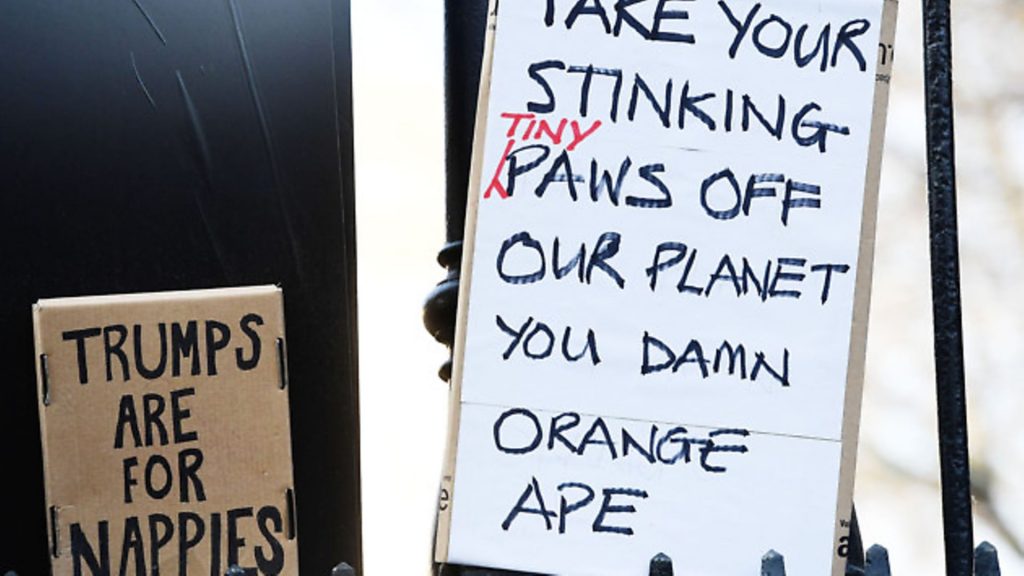 TRUMPS
ARE
FOR
NAPPIES
TAKE YOUR
STINKING
TINY
PAWS OFF
OUR PLANET
YOU DAMN
ORANGE
APE